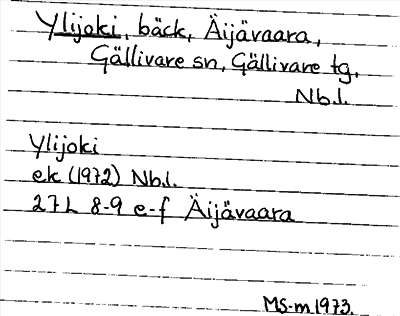 Ylijoki, bäck, Äijävaara,
Gällivare sn, Gällivare tg,
Nb.l.
Ylijoki
ek (1972) Nb.l.
27L 8-9 e-f Äijävaara
MS-m 1973.